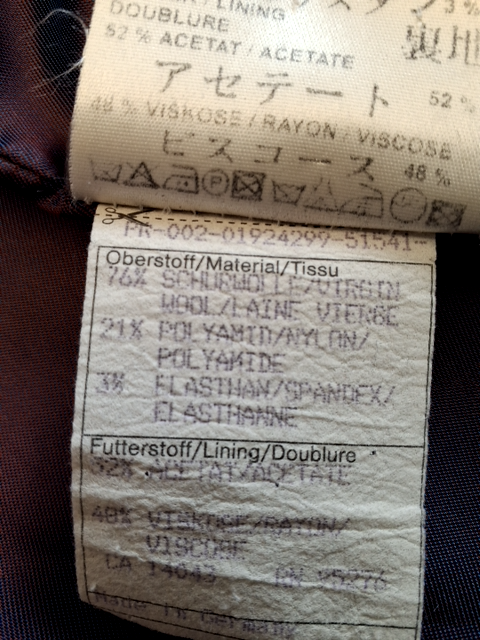 /LINING 3 %
DOUBLURE 裏地
52 % ACETAT / ACETATE
アセテート 52 %
48 % VISKOSE / RAYON / VISCOSE
ビスコース 48 %
PR-002-01924299-51541-
Oberstoff/Material/Tissu
76% SCHURWOLLE/VIRGIN
WOOL/LAINE VIERGE
21% POLYAMID/NYLON/
POLYAMIDE
3% ELASTHAN/SPANDEX/
ELASTHANNE
Futterstoff/Lining/Doublure
52% ACETAT/ACETATE
48% VISKOSE/RAYON/
VISCOSE
CA RN
Made in Germany